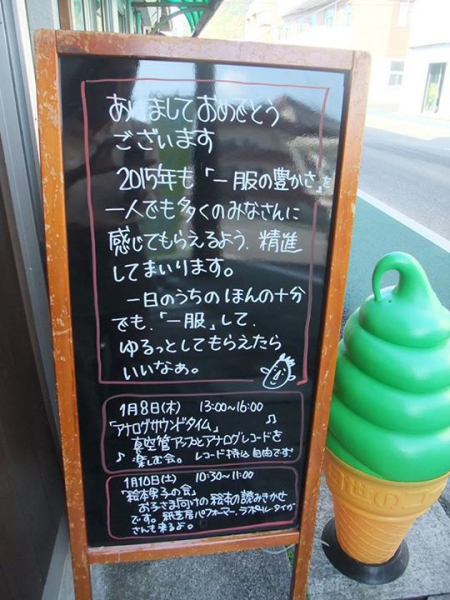 あけましておめでとう
ございます
2015年も「一服の豊かさ」を
一人でも多くのみなさんに
感じてもらえるよう、精進
してまいります。
一日のうちのほんの十分
でも、「一服」して、
ゆるっとしてもらえたら
いいなぁ。
1月8日(木) 13:00~16:00
「アナログサウンドタイム」
真空管アンプとアナログレコードを
楽しむ会。レコード持込自由です
1月10日(土) 10:30~11:00
「絵本男子の会」
お子さま向けの絵本の読みきかせ
です。紙芝居パフォーマー、ラポルム・タイガ
さんも来るよ。